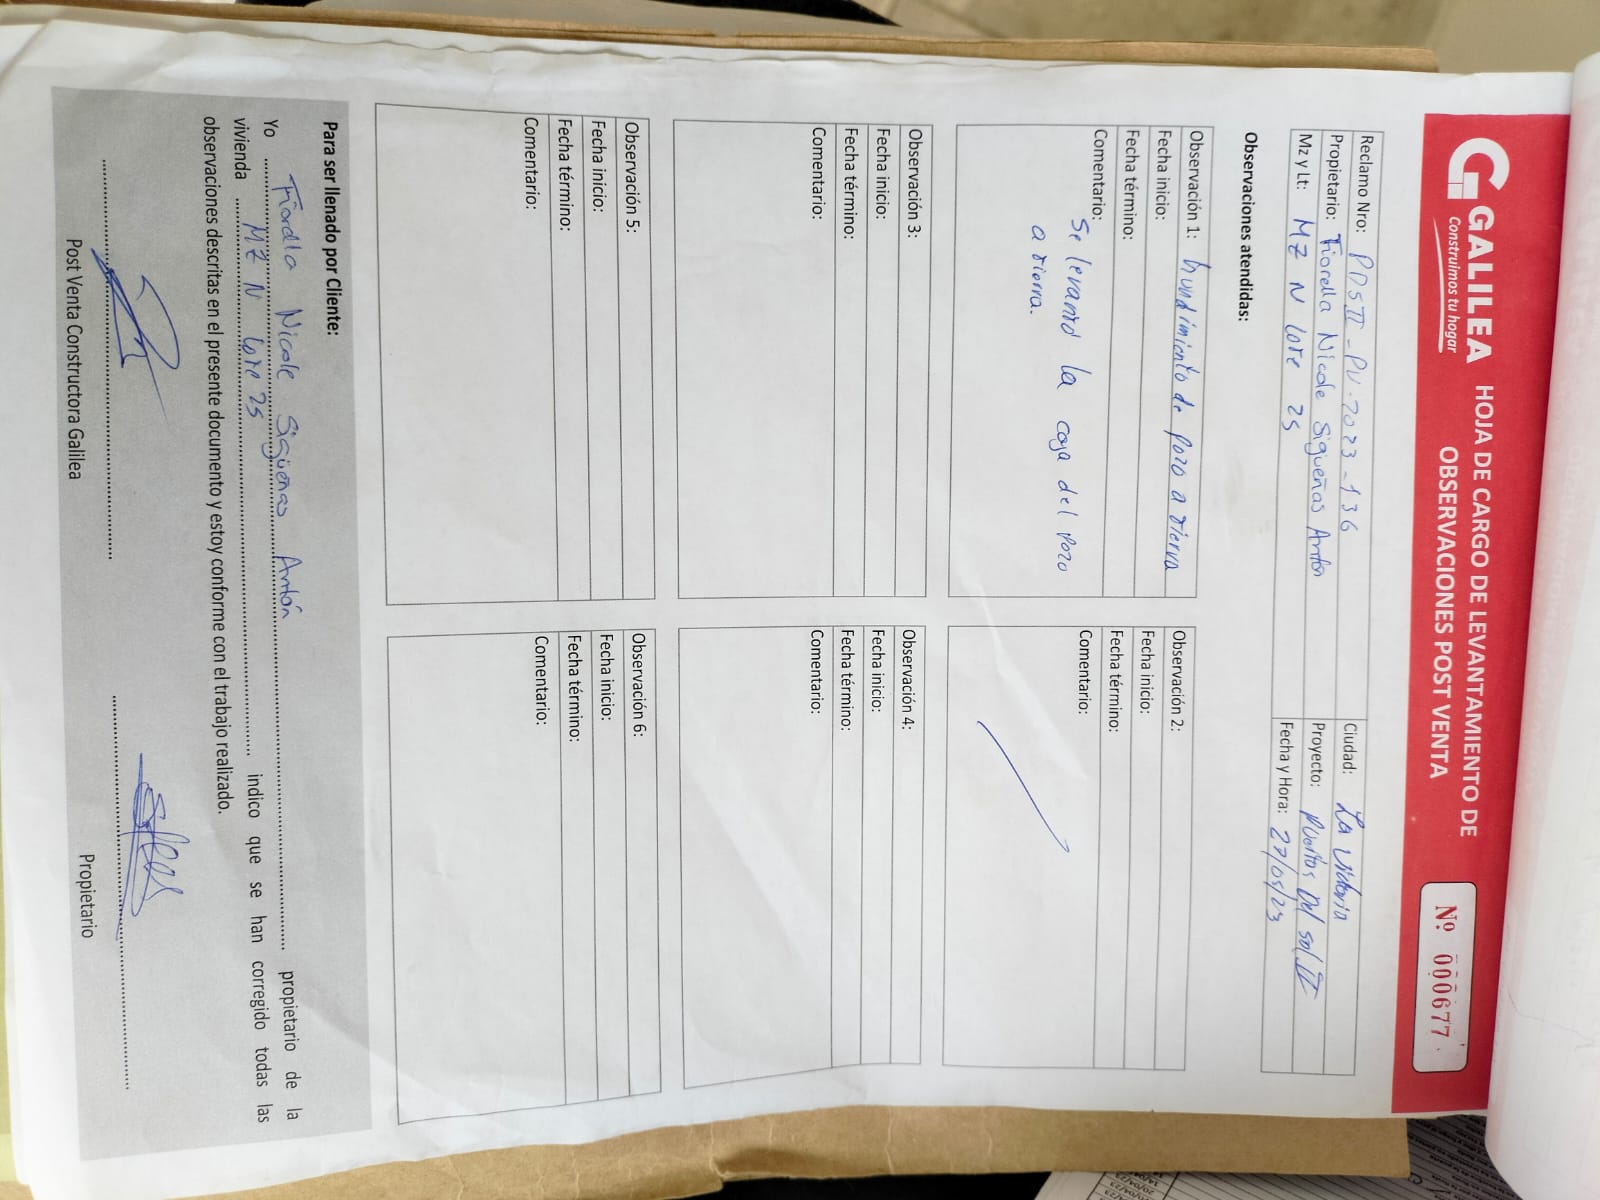 GALILEA
Construimos tu hogar
HOJA DE CARGO DE LEVANTAMIENTO DE
OBSERVACIONES POST VENTA
Nº 000677
Reclamo Nro: PDSII-PV-2023-136
Ciudad: La Victoria
Propietario: Fiorella Nicole Sigüeñas Antón
Proyecto: Puertas Del Sol II
Mz y Lt: MZ N Lote 25
Fecha y Hora: 27/05/23
Observaciones atendidas:
Observación 1: hundimiento de pozo a tierra
Fecha inicio:
Fecha término:
Comentario:
Se levantó la caja del pozo
a tierra.
Observación 2:
Fecha inicio:
Fecha término:
Comentario:
Observación 3:
Fecha inicio:
Fecha término:
Comentario:
Observación 4:
Fecha inicio:
Fecha término:
Comentario:
Observación 5:
Fecha inicio:
Fecha término:
Comentario:
Observación 6:
Fecha inicio:
Fecha término:
Comentario:
Para ser llenado por Cliente:
Yo Fiorella Nicole Sigüeñas Antón propietario de la
vivienda MZ N Lote 25 indico que se han corregido todas las
observaciones descritas en el presente documento y estoy conforme con el trabajo realizado.
Post Venta Constructora Galilea
Propietario